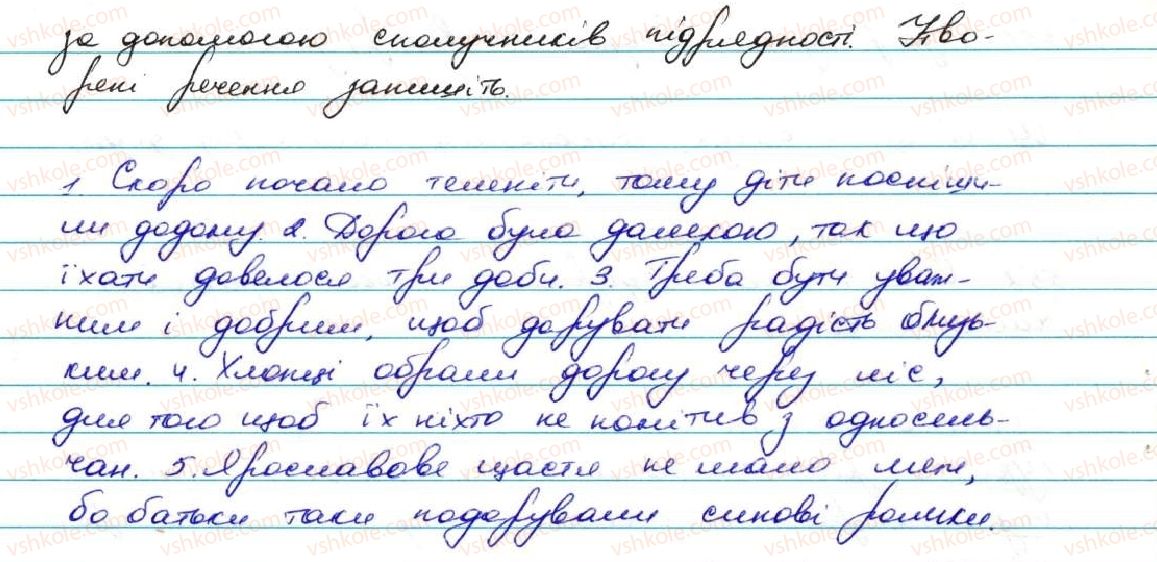 за допомогою сполучників підрядності. Утво-
рені речення запишіть.
1. Скоро почало темніти, тому діти поспіши-
ли додому. 2. Дорога була далекою, так що
їхати довелося три доби. 3. Треба бути уваж-
ним і добрим, щоб дарувати радість близь-
ким. 4. Хлопці обрали дорогу через ліс,
для того щоб їх ніхто не помітив з односель-
чан. 5. Ярославове щастя не мало меж,
бо батьки таки подарували синові ролики.